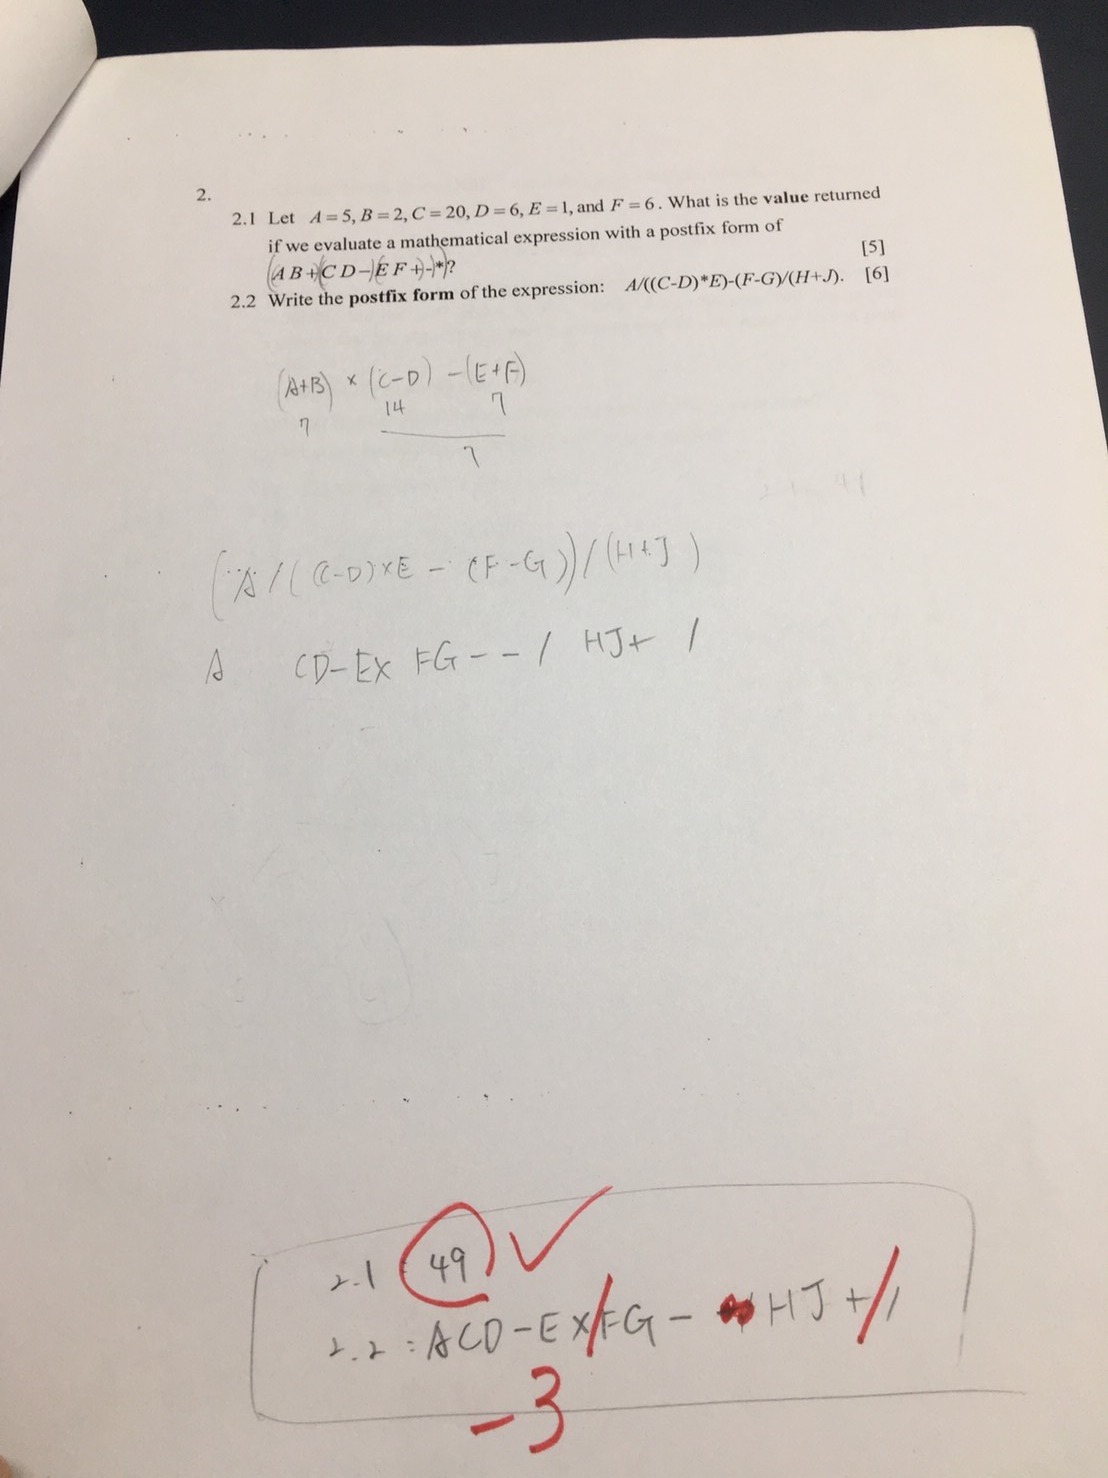 2.
2.1 Let A = 5, B = 2, C = 20, D = 6, E = 1, and F = 6. What is the value returned
if we evaluate a mathematical expression with a postfix form of
(A B+)(C D-)(E F+)-)*)? [5]
2.2 Write the postfix form of the expression: A/((C-D)*E)-(F-G)/(H+J). [6]
(A+B) × (C-D) - (E+F)
7 14 7
7
2.1 = 41
(A / ( (C-D)×E - (F-G))/(H+J)
A CD-EX FG-- / HJ+ /
2.1 49
2.2 : ACD-EX/FG- HJ+/ /
-3